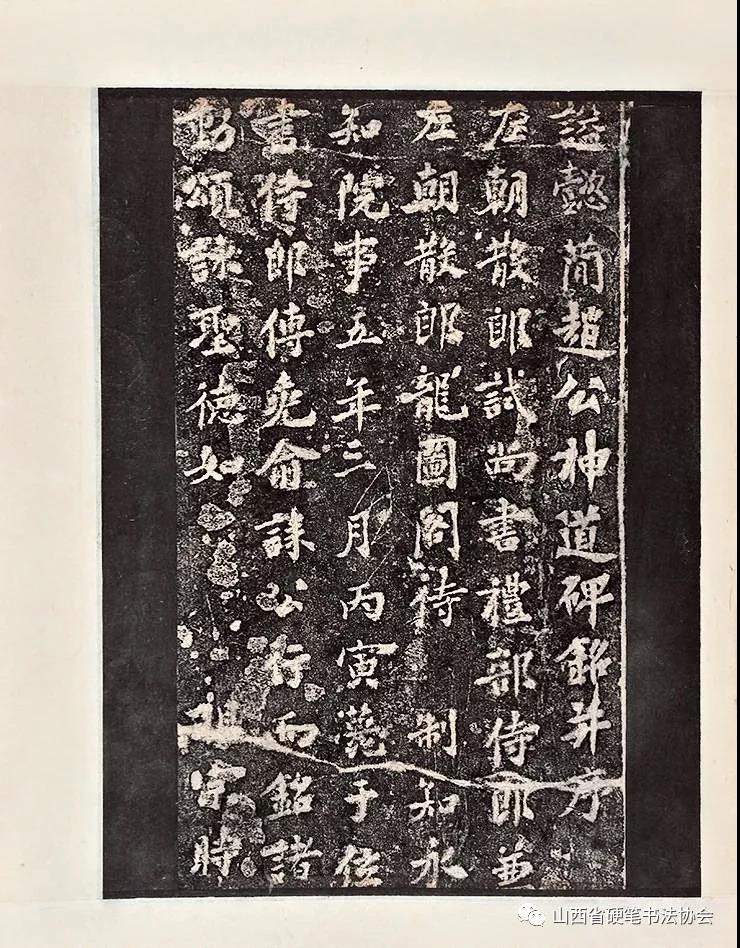 謚懿簡趙公神道碑銘并序
左朝散郎試尚書禮部侍郎兼
左朝散郎龍圖閣待 制知永
知院事五年三月丙寅薨于位
書侍郎傅堯俞誄公行而銘諸
頌 聖德如 祖宗時
山西省硬笔书法协会